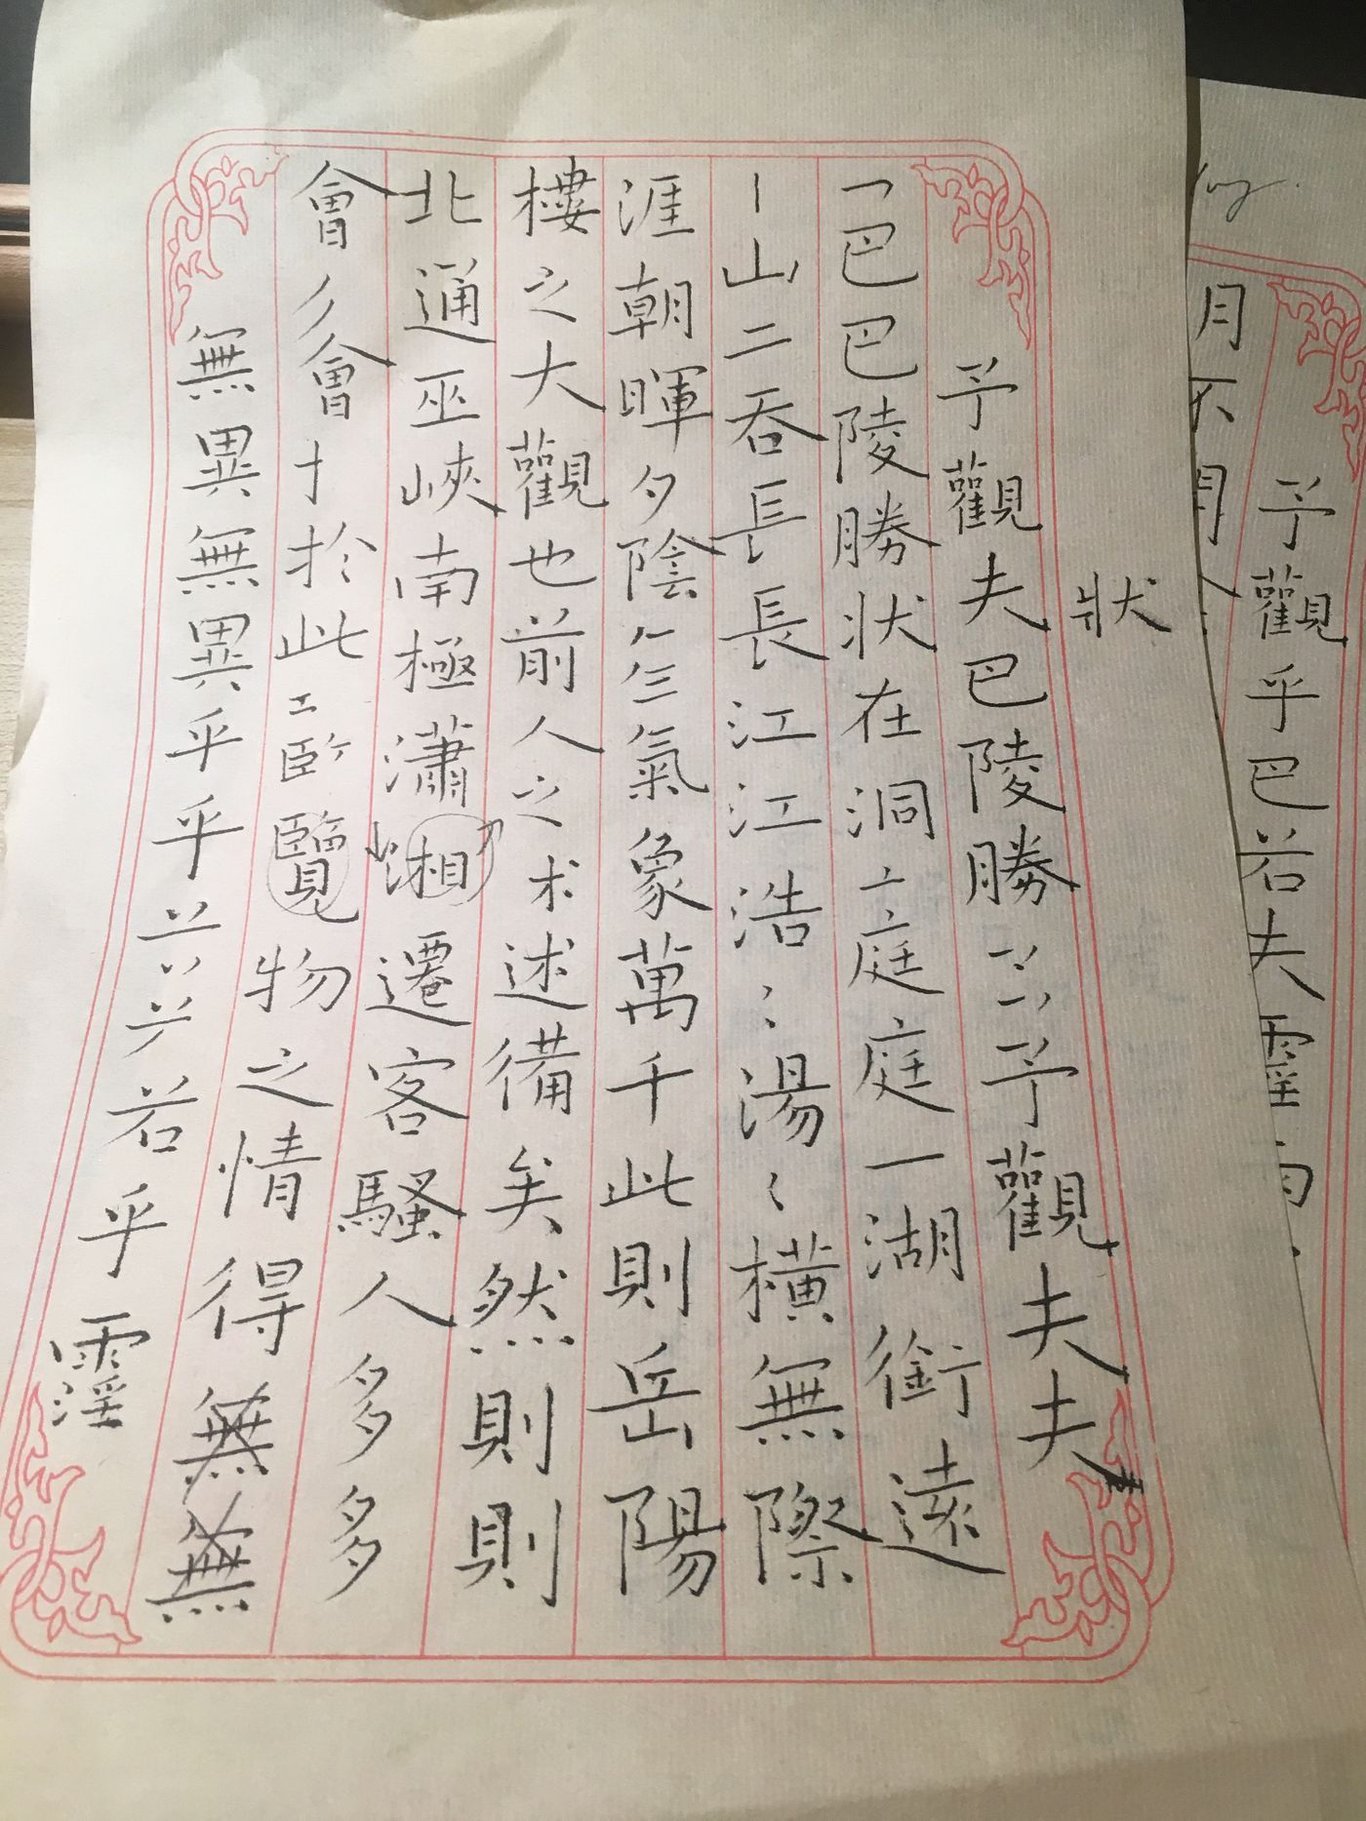 狀
予觀夫巴陵勝予觀夫夫
巴巴陵勝狀在洞庭庭一湖銜遠
山二吞長長江江浩〻湯〻橫無際
涯朝暉夕陰氣象萬千此則岳陽
樓之大觀也前人之朮述備矣然則則
北通巫峽南極瀟湘遷客騷人多多
會會扵此臨覽物之情得無無
無異無異乎乎若乎霪
予觀乎巴若夫霪
月不開